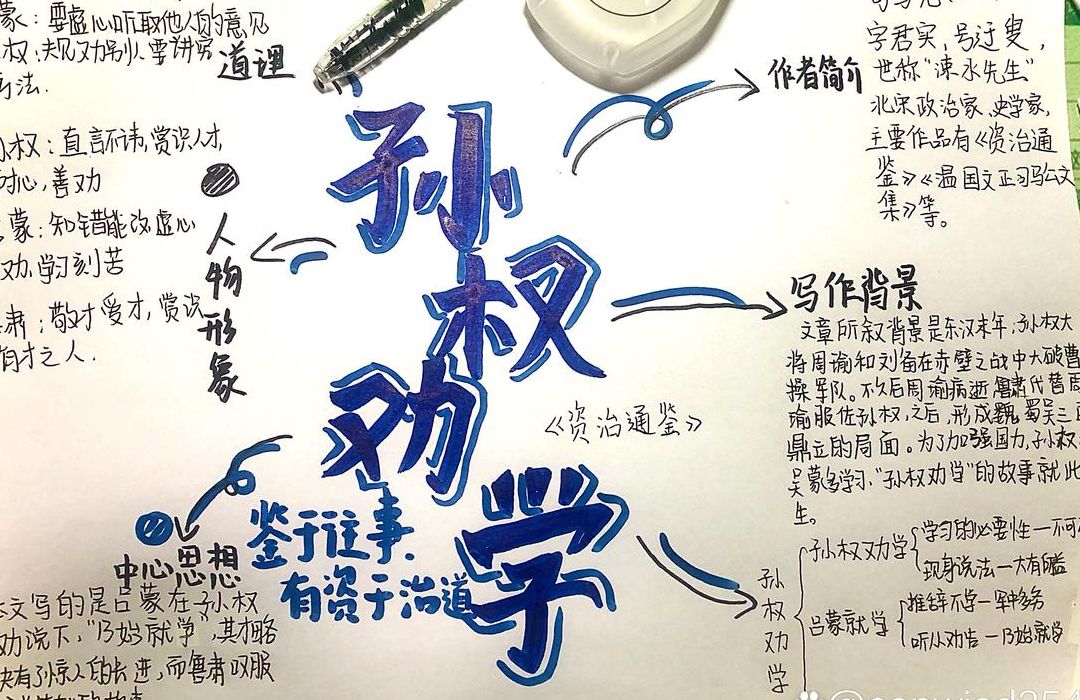 蒙：要虚心听取他人的意见
权：规劝别人要讲究
方法.
道理
孙权：直言不讳,赏识人才,
关心,善劝
蒙：知错能改,虚心
劝,学习刻苦
肃：敬才爱才,赏识
有才之人.
人物形象
孙权劝学
《资治通鉴》
鉴于往事,
有资于治道
中心思想
本文写的是吕蒙在孙权
劝说下,“乃始就学”,其才略
就有了惊人的长进,而鲁肃叹服
作者简介
字君实,号迂叟,
世称“涑水先生”
北宋政治家、史学家,
主要作品有《资治通
鉴》《温国文正司马公文
集》等。
写作背景
文章所叙背景是东汉末年,孙权大
将周瑜和刘备在赤壁之战中大破曹
操军队。不久后周瑜病逝,鲁肃代替周
瑜服佐孙权,之后,形成魏蜀吴三国
鼎立的局面。为了加强国力,孙权
吴蒙多学习,“孙权劝学”的故事就此
生。
孙权劝学
孙权劝学
学习的必要性—不可
现身说法—大有益
吕蒙就学
推辞不学—军中多务
听从劝告—乃始就学